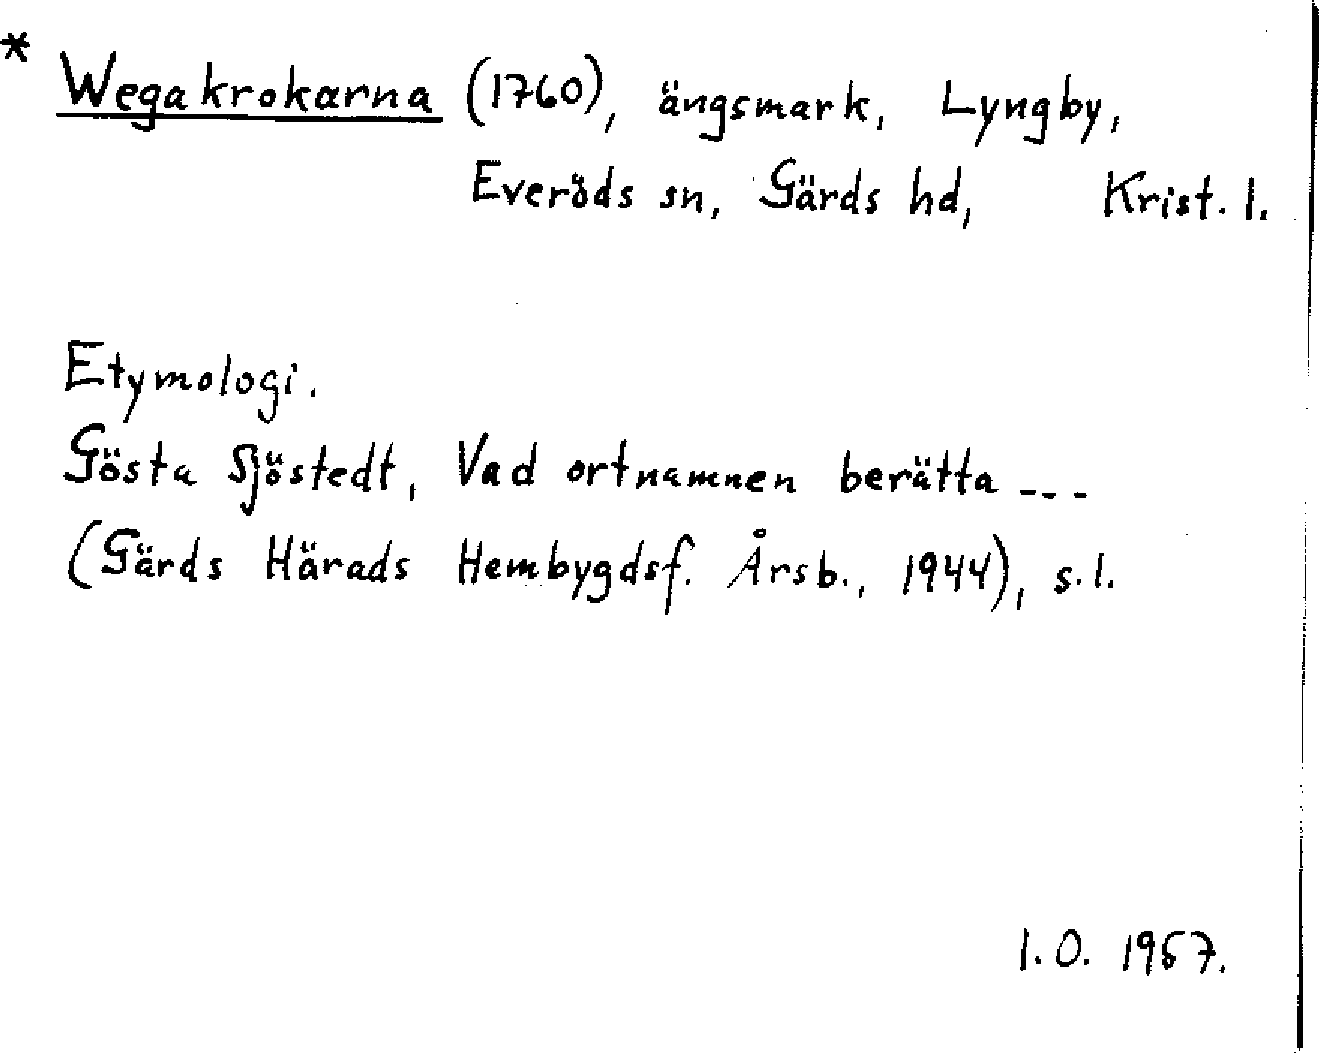 * Wegakrokarna (1760), ängsmark, Lyngby,
Everöds sn, Gärds hd, Krist. l.
Etymologi.
Gösta Sjöstedt, Vad ortnamnen berätta ---
(Gärds Härads Hembygdsf. Årsb., 1944), s. 1.
I. O. 1957.